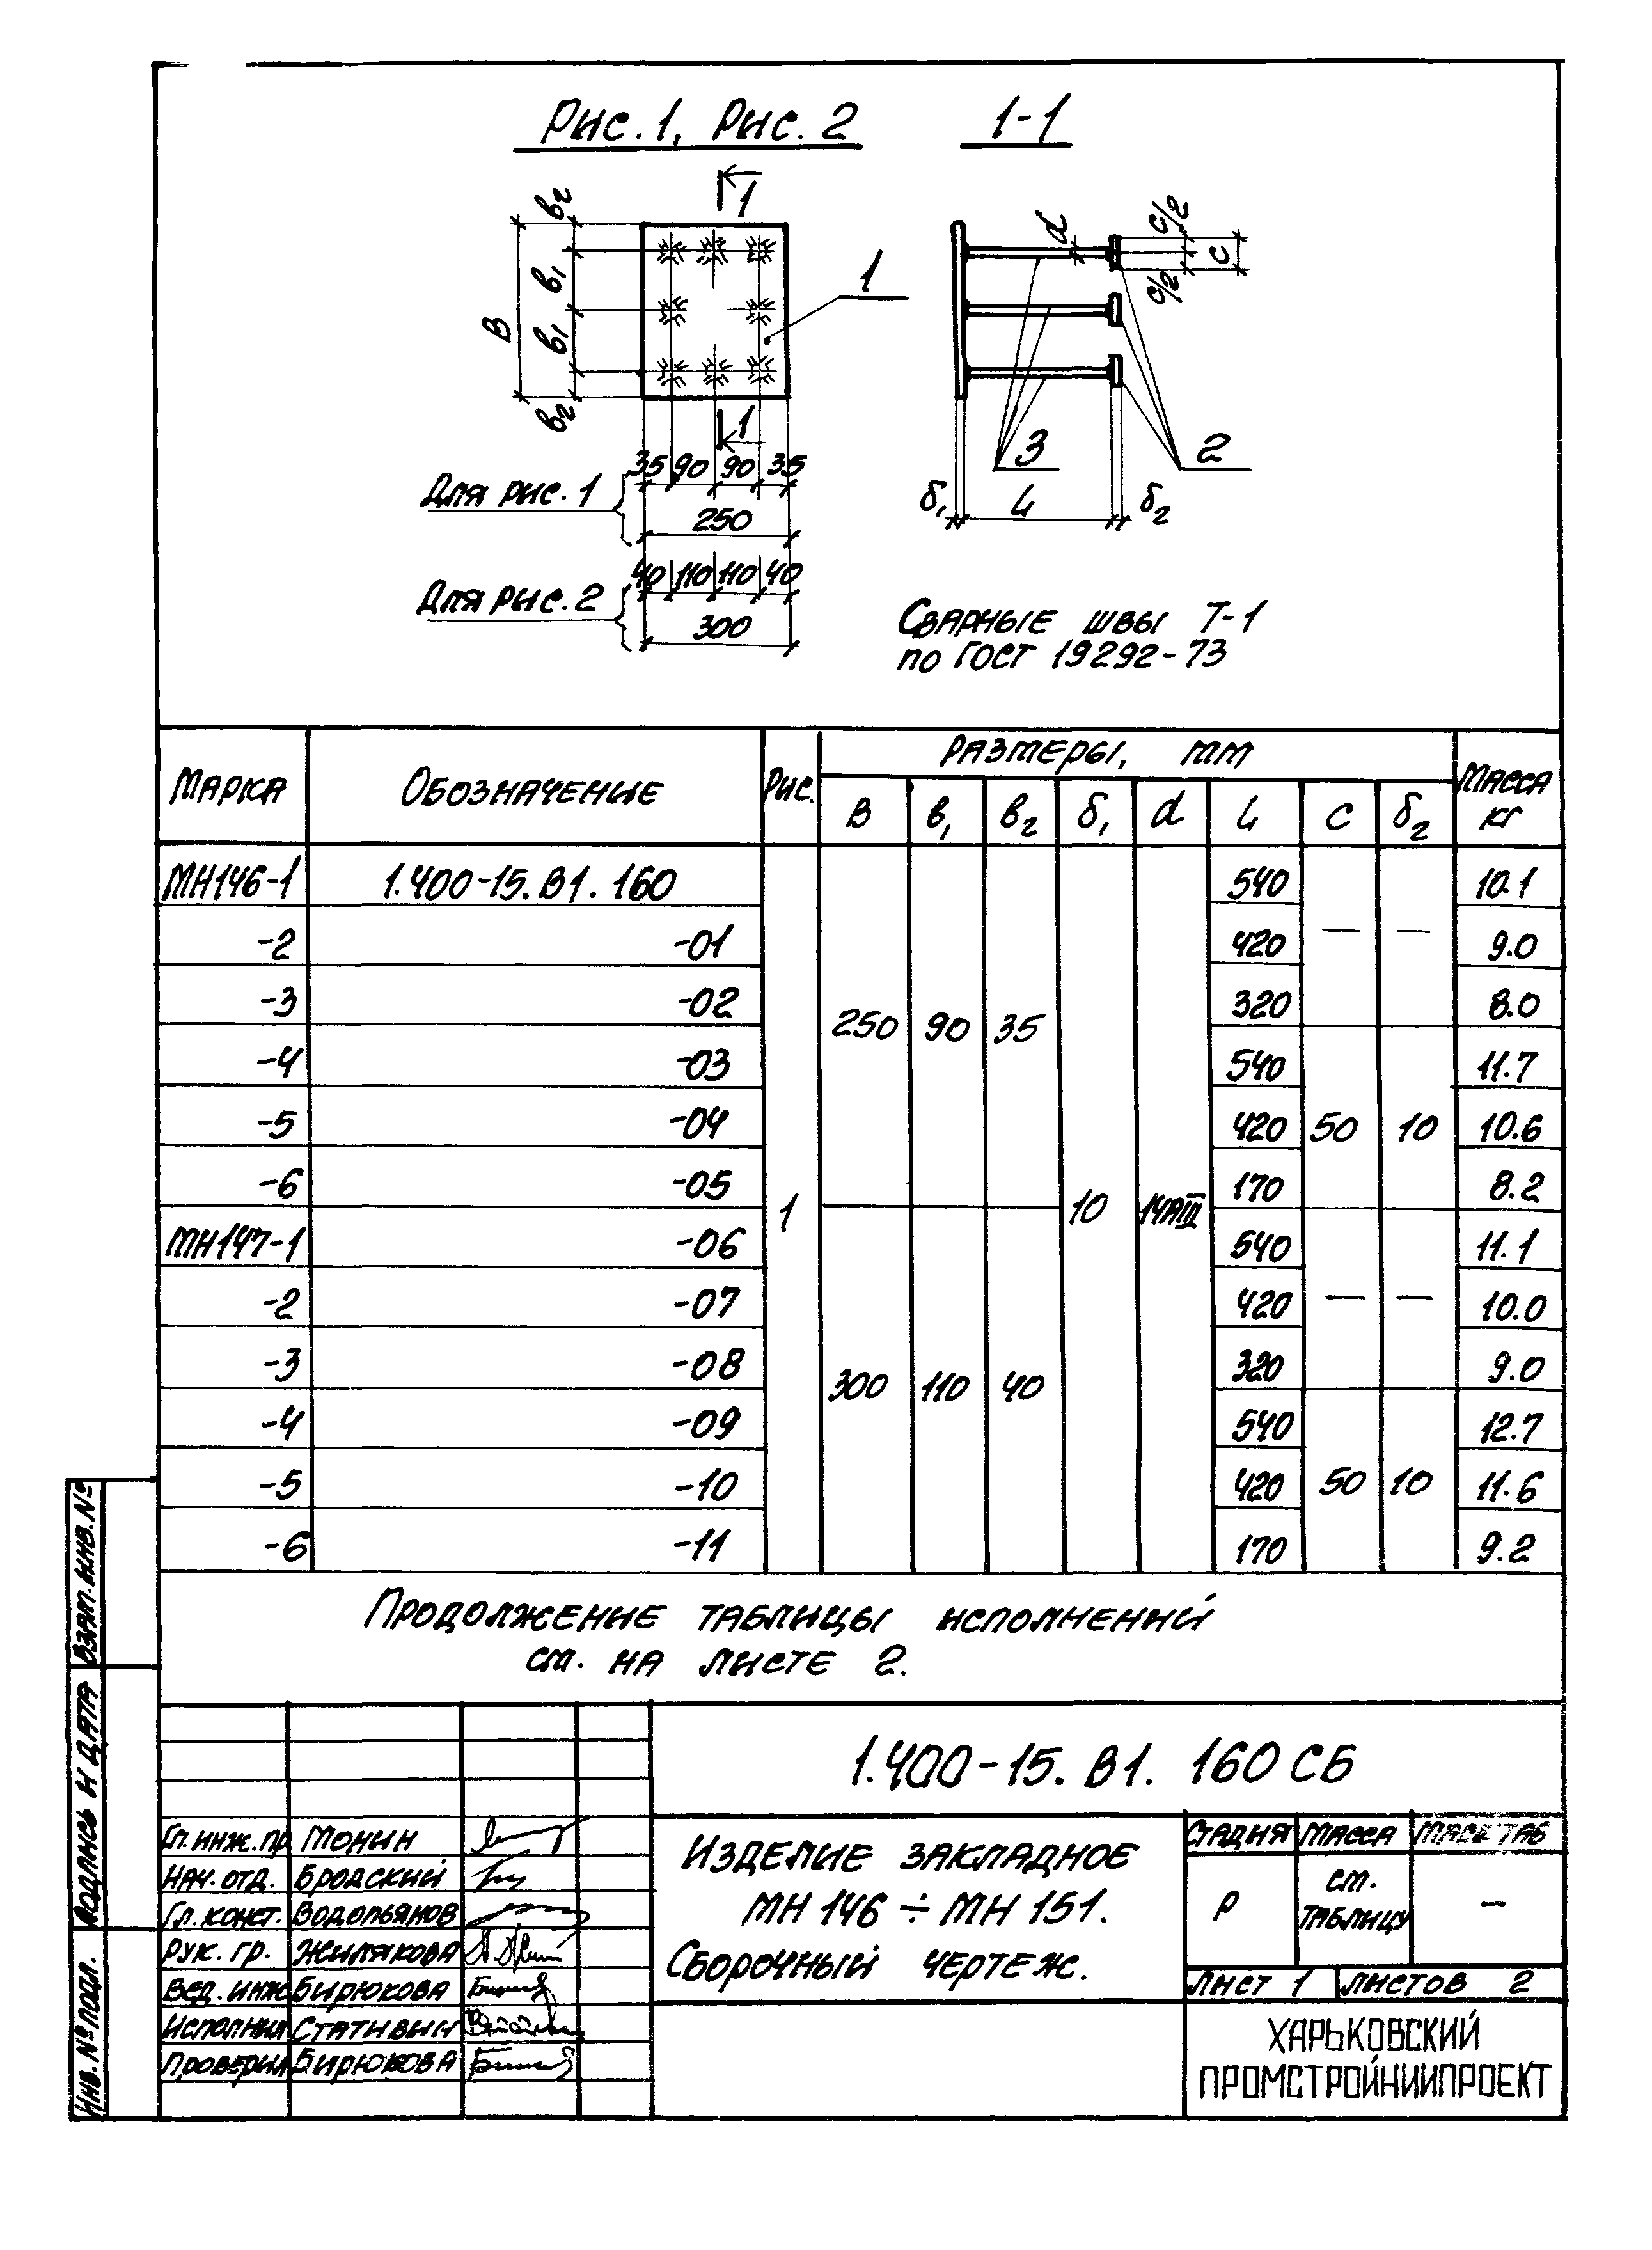 Рис. 1, Рис. 2
1-1
1
в2
в1
в1
в2
В
1
1
35 90 90 35
Для рис. 1
250
40 110 110 40
Для рис. 2
300
d
с/2
с/2
с
3
2
δ1
L
δ2
Сварные швы Т-1
по ГОСТ 19292-73
Марка Обозначение Рис. Размеры, мм Масса кг
В в1 в2 δ1 d L с δ2
МН146-1 1.400-15.В1.160 540 10.1
-2 -01 420 — — 9.0
-3 -02 320 8.0
250 90 35
-4 -03 540 11.7
-5 -04 420 50 10 10.6
-6 -05 170 8.2
1 10 14АIII
МН147-1 -06 540 11.1
-2 -07 420 — — 10.0
-3 -08 320 9.0
300 110 40
-4 -09 540 12.7
-5 -10 420 50 10 11.6
-6 -11 170 9.2
Продолжение таблицы исполнений
см. на листе 2.
Взам. инв. №
Подпись и дата
Инв. № подл.
1.400-15.В1.160 СБ
Гл. инж. пр. Монин
Нач. отд. Бродский
Гл. конст. Водопьянов
Рук. гр. Жилякова
Вед. инж. Бирюкова
Исполнил Стативин
Проверил Бирюкова
Изделие закладное
МН 146 ÷ МН 151.
Сборочный чертеж.
Стадия Масса Масштаб
Р см. таблицу —
Лист 1 Листов 2
ХАРЬКОВСКИЙ
ПРОМСТРОЙНИИПРОЕКТ